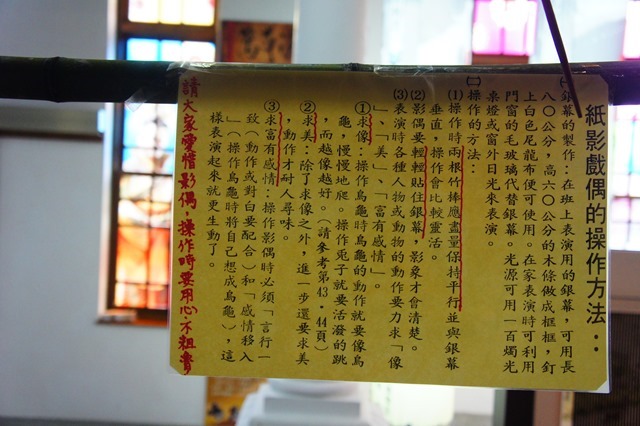 紙影戲偶的操作方法：
㈠銀幕的製作：在班上表演用的銀幕，可用長
八〇公分，高六〇公分的木條做成框框，釘
上白色尼龍布便可使用。在家表演時可利用
門窗的毛玻璃代替銀幕。光源可用一百燭光
桌燈或窗外日光來表演。
㈡操作的方法：
⑴操作時兩根竹棒應盡量保持平行並與銀幕
垂直，操作會比較靈活。
⑵影偶要輕輕貼住銀幕，影象才會清楚。
⑶表演時各種人物或動物的動作要力求「像
」、「美」、「富有感情」。
①求像：操作烏龜時烏龜的動作就要像烏
龜，慢慢地爬。操作兎子就要活潑的跳
，而越像越好。（請參考第43、44頁）
②求美：除了求像之外，進一步還要求美
，動作才耐人尋味。
③求富有感情：操作影偶時必須「言行一
致（動作或對白要配合）和「感情移入
」（操作烏龜時將自己想成烏龜），這
樣表演起來就更生動了。
請大家愛惜影偶，操作時要用心、不粗魯